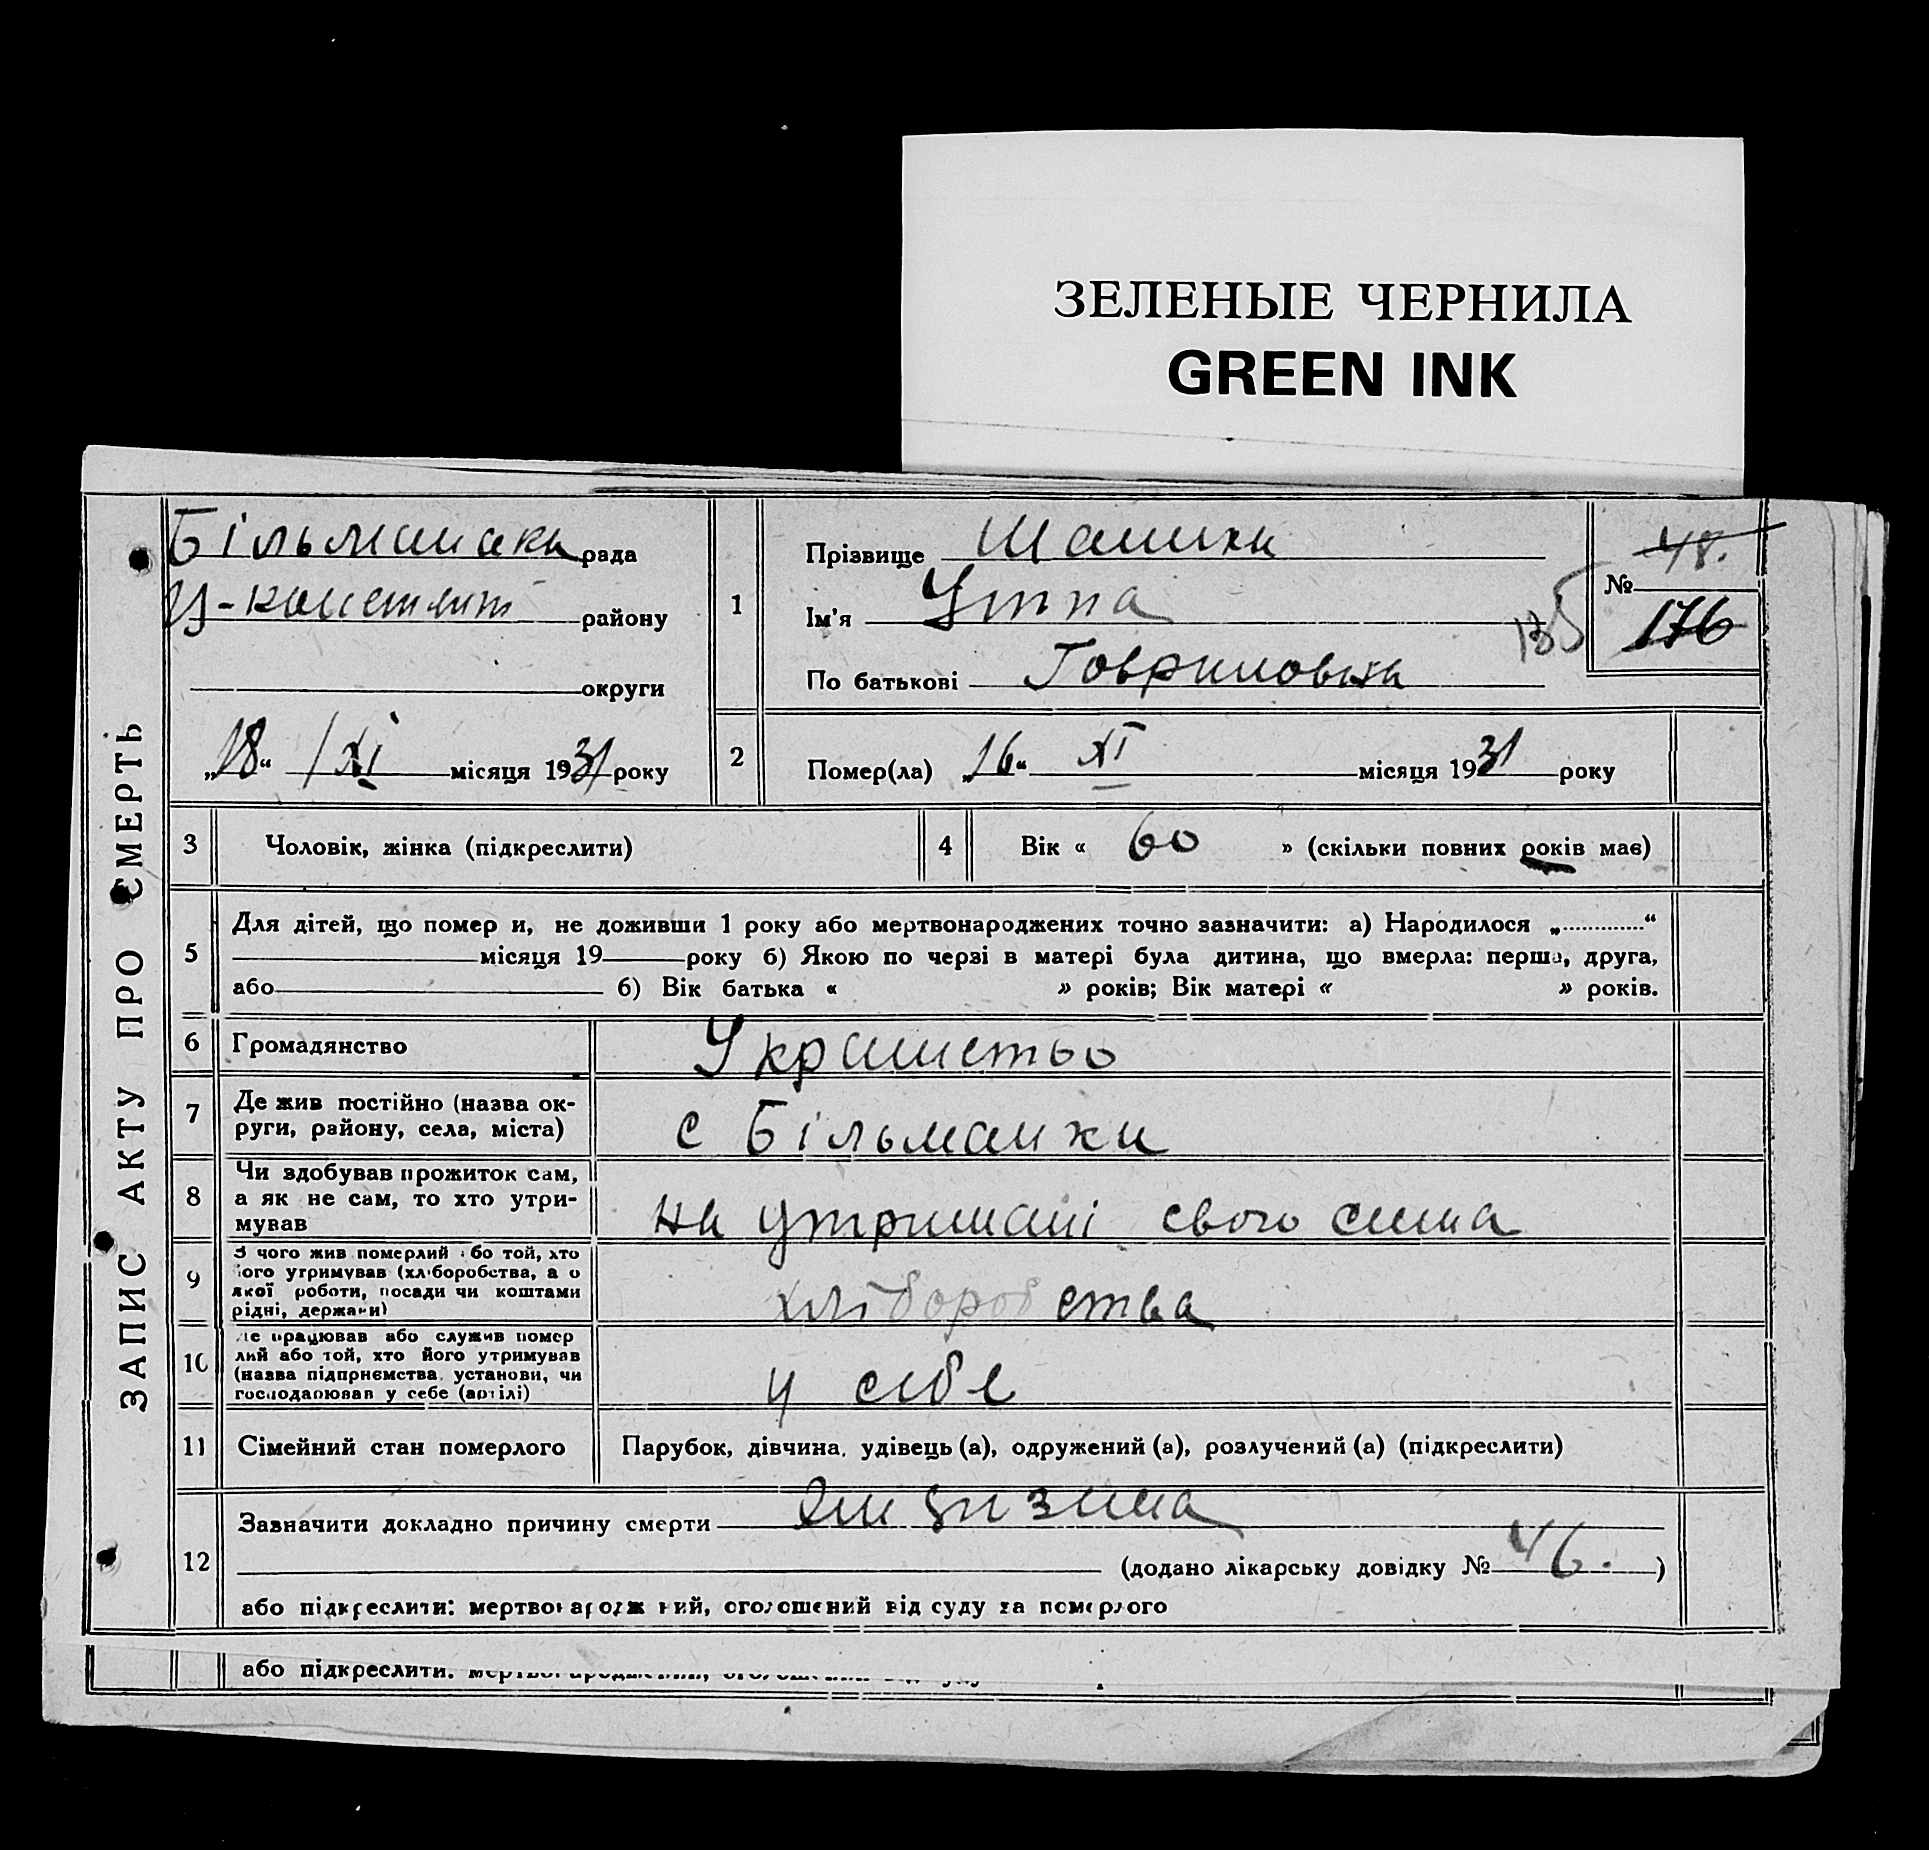 ЗЕЛЕНЫЕ ЧЕРНИЛА
GREEN INK
ЗАПИС АКТУ ПРО СМЕРТЬ
рада
району
округи
„18“ XI місяця 1931 року
1
Прізвище
Ім'я
По батькові
№ 48.
176
135
2
Помер(ла) „16“ XI місяця 1931 року
3 Чоловік, жінка (підкреслити)
4 Вік « 60 » (скільки повних років має)
5
Для дітей, що помер и, не доживши 1 року або мертвонароджених точно зазначити: а) Народилося „..............“
місяця 19 року б) Якою по черзі в матері була дитина, що вмерла: перша, друга,
або б) Вік батька « » років; Вік матері « » років.
6 Громадянство
7 Де жив постійно (назва ок-
руги, району, села, міста)
с Більманки
8 Чи здобував прожиток сам,
а як не сам, то хто утри-
мував
на утримані свого сина
9 З чого жив померлий або той, хто
його утримував (хліборобства, а о
якої роботи, посади чи коштами
рідні, держави)
хліборобства
10 Де працював або служив помер
лий або той, хто його утримував
(назва підприємства, установи, чи
господарював у себе (артілі)
у себе
11 Сімейний стан померлого
Парубок, дівчина, удівець (а), одружений (а), розлучений (а) (підкреслити)
12
Зазначити докладно причину смерти
(додано лікарську довідку № 46. )
або підкреслити: мертвонароджений, оголошений від суду за померлого
або підкреслити.